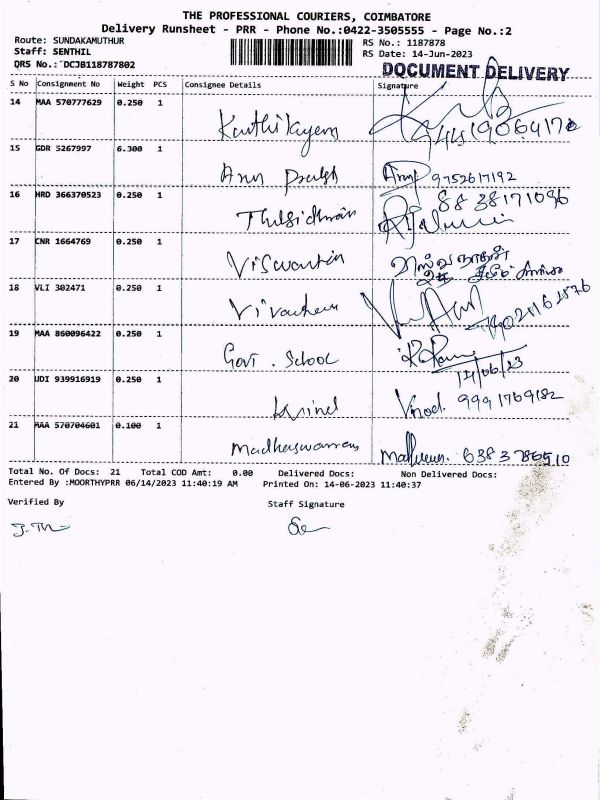 THE PROFESSIONAL COURIERS, COIMBATORE
Delivery Runsheet - PRR - Phone No.:0422-3505555 - Page No.:2
Route: SUNDAKAMUTHUR
RS No.: 1187878
Staff: SENTHIL
RS Date: 14-Jun-2023
QRS No.: DCJB118787802
DOCUMENT DELIVERY
S No Consignment No Weight PCS Consignee Details Signature
14 MAA 570777629 0.250 1
15 GDR 5267997 6.300 1 9752617192
16 HRD 366370523 0.250 1 8838171096
17 CNR 1664769 0.250 1
18 VLI 302471 0.250 1
19 MAA 860096422 0.250 1 Govt. School
14/06/23
20 UDI 939916919 0.250 1 Vinod. 9991769182
21 MAA 570704601 0.100 1 Madheswaran
Total No. Of Docs: 21 Total COD Amt: 0.00 Delivered Docs: Non Delivered Docs:
Entered By :MOORTHYPRR 06/14/2023 11:40:19 AM Printed On: 14-06-2023 11:40:37
Verified By Staff Signature